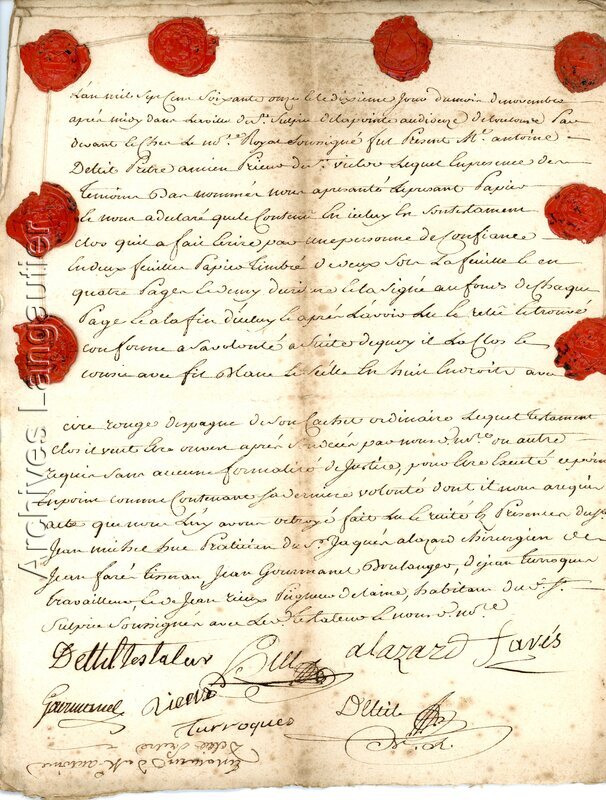 L'an mil sept cens soixante onze et le dixieme jour du mois de novembre
apres midy dans la ville de St. Sulpice de la pointe au dioceze de toulouze Par
devant le no.re Royal Soussigné fut Present Mr. antoine
Delteil Pretre ancien Prieur de St. victor Lequel En presence des
temoins bas nommés nous a presanté le presant Papier
Et nous a declaré que le Contenu En iceluy Est son testament
clos quil a fait Ecrire par une personne de Confiance
En deux feuilles Papier timbré de deux sols La feuille et en
quatre Pages et demy d'ecriture et la signé au fonds de Chaque
Page et a la fin d'iceluy et apres L'avoir Lu et relu et trouvé
conforme a sa volonté a suite dequoy il La Clos et
cousu avec fil blanc et scellé En huit Endroits avec
cire rouge d'espagne de son Cachet ordinaire Lequel testament
clos il veut Etre ouvert apres son deces par nous no.re ou autre
requis sans aucune formalité de Justice, pour Etre Executé
comme Contenant sa derniere volonté dont il nous a requis
acte que nous Luy avons octroyé fait Lu et recité Es Presences du Sr.
Jean michel huc Praticien du Sr. Jaques alazard chirurgien de
Jean farés tisseran, Jean Gourmanel Boulanger, de jean turroques
travailleur, et de Jean rieux Peigneur de laine, habitans du d. St.
Sulpice Soussignes avec Le d. testateur et nous no.re
Delteil testateur
Huc
alazard
farés
Gourmanel
rieux
turroques
Delteil
Archives Langautier